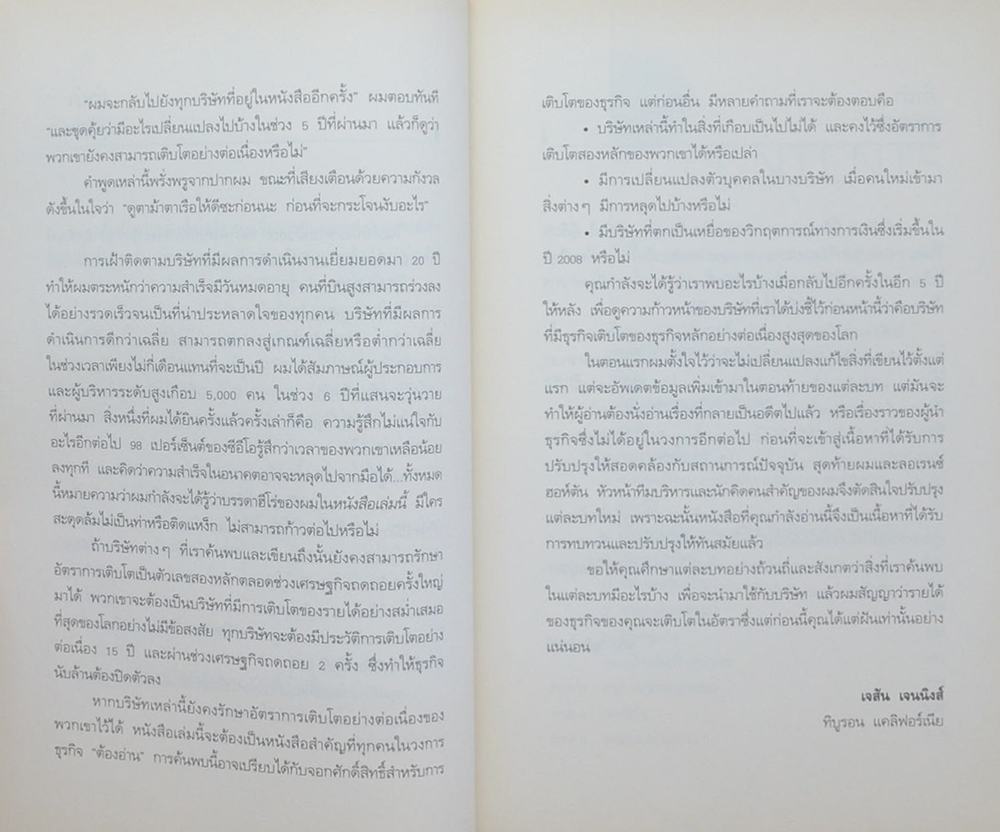 "ผมจะกลับไปยังทุกบริษัทที่อยู่ในหนังสืออีกครั้ง" ผมตอบทันที
"และขุดคุ้ยว่ามีอะไรเปลี่ยนแปลงไปบ้างในช่วง 5 ปีที่ผ่านมา แล้วก็ดูว่า
พวกเขายังคงสามารถเติบโตอย่างต่อเนื่องหรือไม่"
คำพูดเหล่านี้พรั่งพรูจากปากผม ขณะที่เสียงเตือนด้วยความกังวล
ดังขึ้นในใจว่า "ดูตาม้าตาเรือให้ดีซะก่อนนะ ก่อนที่จะกระโจนงับอะไร"
การเฝ้าติดตามบริษัทที่มีผลการดำเนินงานเยี่ยมยอดมา 20 ปี
ทำให้ผมตระหนักว่าความสำเร็จมีวันหมดอายุ คนที่บินสูงสามารถร่วงลง
ได้อย่างรวดเร็วจนเป็นที่น่าประหลาดใจของทุกคน บริษัทที่มีผลการ
ดำเนินการดีกว่าเฉลี่ย สามารถตกลงสู่เกณฑ์เฉลี่ยหรือต่ำกว่าเฉลี่ย
ในช่วงเวลาเพียงไม่กี่เดือนแทนที่จะเป็นปี ผมได้สัมภาษณ์ผู้ประกอบการ
และผู้บริหารระดับสูงเกือบ 5,000 คน ในช่วง 6 ปีที่แสนจะวุ่นวาย
ที่ผ่านมา สิ่งหนึ่งที่ผมได้ยินครั้งแล้วครั้งเล่าก็คือ ความรู้สึกไม่แน่ใจกับ
อะไรอีกต่อไป 98 เปอร์เซ็นต์ของซีอีโอรู้สึกว่าเวลาของพวกเขาเหลือน้อย
ลงทุกที และคิดว่าความสำเร็จในอนาคตอาจจะหลุดไปจากมือได้...ทั้งหมด
นี้หมายความว่าผมกำลังจะได้รู้ว่าบรรดาฮีโร่ของผมในหนังสือเล่มนี้ มีใคร
สะดุดล้มไม่เป็นท่าหรือติดแหง็ก ไม่สามารถก้าวต่อไปหรือไม่
ถ้าบริษัทต่างๆ ที่เราค้นพบและเขียนถึงนั้นยังคงสามารถรักษา
อัตราการเติบโตเป็นตัวเลขสองหลักตลอดช่วงเศรษฐกิจถดถอยครั้งใหญ่
มาได้ พวกเขาจะต้องเป็นบริษัทที่มีการเติบโตของรายได้อย่างสม่ำเสมอ
ที่สุดของโลกอย่างไม่มีข้อสงสัย ทุกบริษัทจะต้องมีประวัติการเติบโตอย่าง
ต่อเนื่อง 15 ปี และผ่านช่วงเศรษฐกิจถดถอย 2 ครั้ง ซึ่งทำให้ธุรกิจ
นับล้านต้องปิดตัวลง
หากบริษัทเหล่านี้ยังคงรักษาอัตราการเติบโตอย่างต่อเนื่องของ
พวกเขาไว้ได้ หนังสือเล่มนี้จะต้องเป็นหนังสือสำคัญที่ทุกคนในวงการ
ธุรกิจ "ต้องอ่าน" การค้นพบนี้อาจเปรียบได้กับจอกศักดิ์สิทธิ์สำหรับการ
เติบโตของธุรกิจ แต่ก่อนอื่น มีหลายคำถามที่เราจะต้องตอบคือ
• บริษัทเหล่านี้ทำในสิ่งที่เกือบเป็นไปไม่ได้ และคงไว้ซึ่งอัตราการ
เติบโตสองหลักของพวกเขาได้หรือเปล่า
• มีการเปลี่ยนแปลงตัวบุคคลในบางบริษัท เมื่อคนใหม่เข้ามา
สิ่งต่างๆ มีการหลุดไปบ้างหรือไม่
• มีบริษัทที่ตกเป็นเหยื่อของวิกฤตการณ์ทางการเงินซึ่งเริ่มขึ้นใน
ปี 2008 หรือไม่
คุณกำลังจะได้รู้ว่าเราพบอะไรบ้างเมื่อกลับไปอีกครั้งในอีก 5 ปี
ให้หลัง เพื่อดูความก้าวหน้าของบริษัทที่เราได้บ่งชี้ไว้ก่อนหน้านี้ว่าคือบริษัท
ที่มีธุรกิจเติบโตของธุรกิจหลักอย่างต่อเนื่องสูงสุดของโลก
ในตอนแรกผมตั้งใจไว้ว่าจะไม่เปลี่ยนแปลงแก้ไขสิ่งที่เขียนไว้ตั้งแต่
แรก แต่จะอัพเดตข้อมูลเพิ่มเข้ามาในตอนท้ายของแต่ละบท แต่มันจะ
ทำให้ผู้อ่านต้องนั่งอ่านเรื่องที่กลายเป็นอดีตไปแล้ว หรือเรื่องราวของผู้นำ
ธุรกิจซึ่งไม่ได้อยู่ในวงการอีกต่อไป ก่อนที่จะเข้าสู่เนื้อหาที่ได้รับการ
ปรับปรุงให้สอดคล้องกับสถานการณ์ปัจจุบัน สุดท้ายผมและลอเรนซ์
ฮอห์ตัน หัวหน้าทีมบริหารและนักคิดคนสำคัญของผมจึงตัดสินใจปรับปรุง
แต่ละบทใหม่ เพราะฉะนั้นหนังสือที่คุณกำลังอ่านนี้จึงเป็นเนื้อหาที่ได้รับ
การทบทวนและปรับปรุงให้ทันสมัยแล้ว
ขอให้คุณศึกษาแต่ละบทอย่างถ้วนถี่และสังเกตว่าสิ่งที่เราค้นพบ
ในแต่ละบทมีอะไรบ้าง เพื่อจะนำมาใช้กับบริษัท แล้วผมสัญญาว่ารายได้
ของธุรกิจของคุณจะเติบโตในอัตราซึ่งแต่ก่อนนี้คุณได้แต่ฝันเท่านั้นอย่าง
แน่นอน
เจสัน เจนนิงส์
ทิบูรอน แคลิฟอร์เนีย